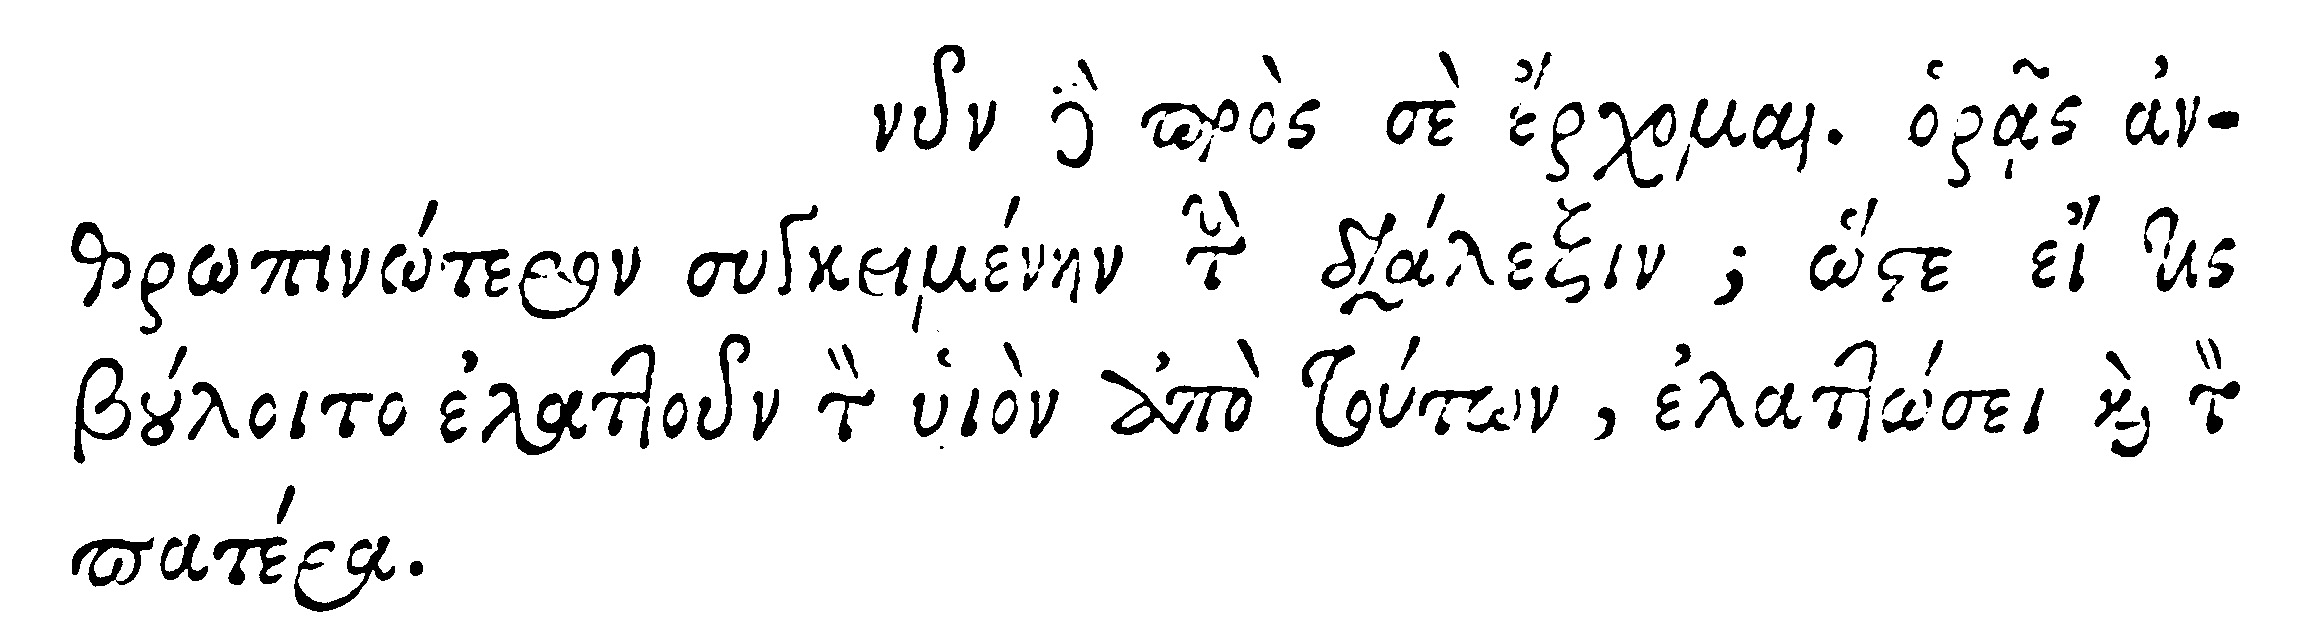 νῦν δὲ πρὸς σὲ ἔρχομαι. ὁρᾷς ἀν-
θρωπινώτερον συγκειμένην τὴν διάλεξιν; ὥστε εἴ τις
βούλοιτο ἐλαττοῦν τὸν υἱὸν ἀπὸ τούτων, ἐλαττώσει καὶ τὸν
πατέρα.